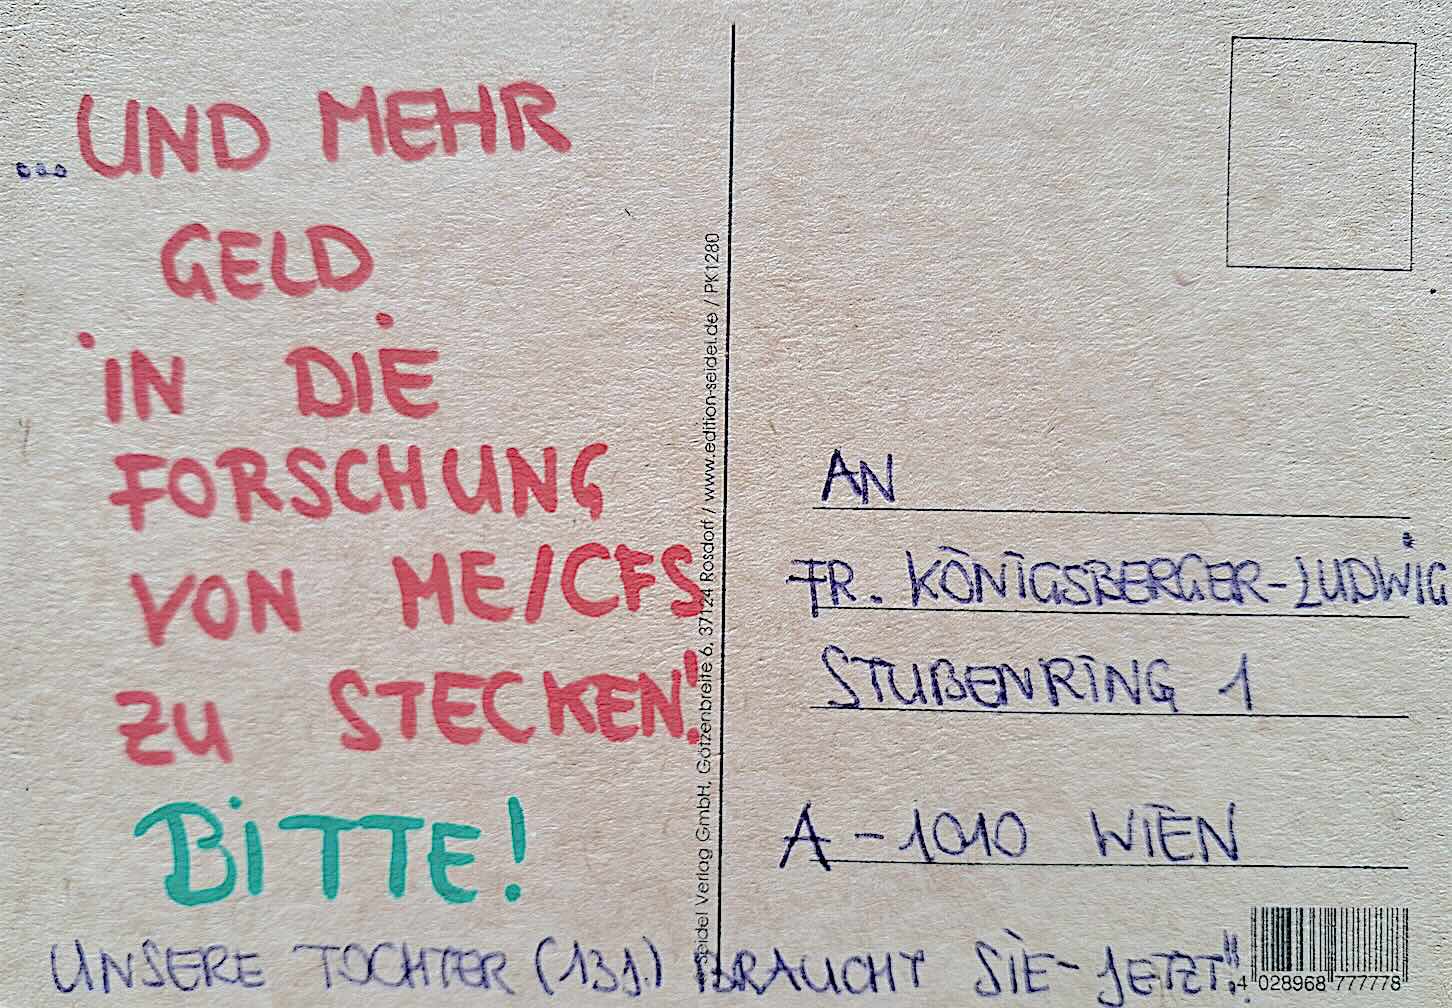 ...UND MEHR
GELD
IN DIE
FORSCHUNG
VON ME/CFS
ZU STECKEN!
BITTE!
UNSERE TOCHTER (13J.) BRAUCHT SIE - JETZT!!
Seidel Verlag GmbH, Götzenbreite 6, 37124 Rosdorf / www.edition-seidel.de / PK1280
AN
FR. KÖNIGSBERGER-LUDWIG
STUBENRING 1
A - 1010 WIEN
4 028968 777778